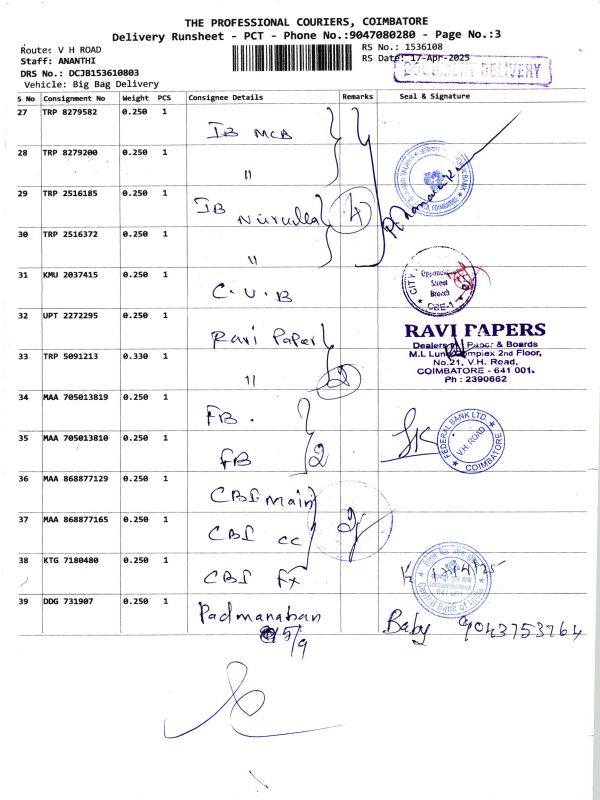 THE PROFESSIONAL COURIERS, COIMBATORE
Delivery Runsheet - PCT - Phone No.:9047080280 - Page No.:3
Route: V H ROAD
RS No.: 1536108
Staff: ANANTHI
RS Date: 17-Apr-2025
DRS No.: DCJB153610803
DOCUMENT DELIVERY
Vehicle: Big Bag Delivery
S No Consignment No Weight PCS Consignee Details Remarks Seal & Signature
27 TRP 8279582 0.250 1 IB MCB
28 TRP 8279200 0.250 1 "
29 TRP 2516185 0.250 1 IB Nurulla 4
30 TRP 2516372 0.250 1 "
31 KMU 2037415 0.250 1 C.U.B
CITY
Oppanakara
Street
Branch
CBE-1
32 UPT 2272295 0.250 1 Ravi Paper
RAVI PAPERS
Dealers in Paper & Boards
M.L Luna Complex 2nd Floor,
No.21, V.H. Road,
COIMBATORE - 641 001.
Ph : 2390662
33 TRP 5091213 0.330 1 " 2
34 MAA 705013819 0.250 1 FB.
FEDERAL BANK LTD.
V.H. ROAD
COIMBATORE
35 MAA 705013810 0.250 1 FB 2
36 MAA 868877129 0.250 1 CBI main
37 MAA 868877165 0.250 1 CBI CC
38 KTG 7180480 0.250 1 CBI FX
17/4/25
Central Bank of India
39 DDG 731907 0.250 1 Padmanaban
5/9
Baby 9043753764